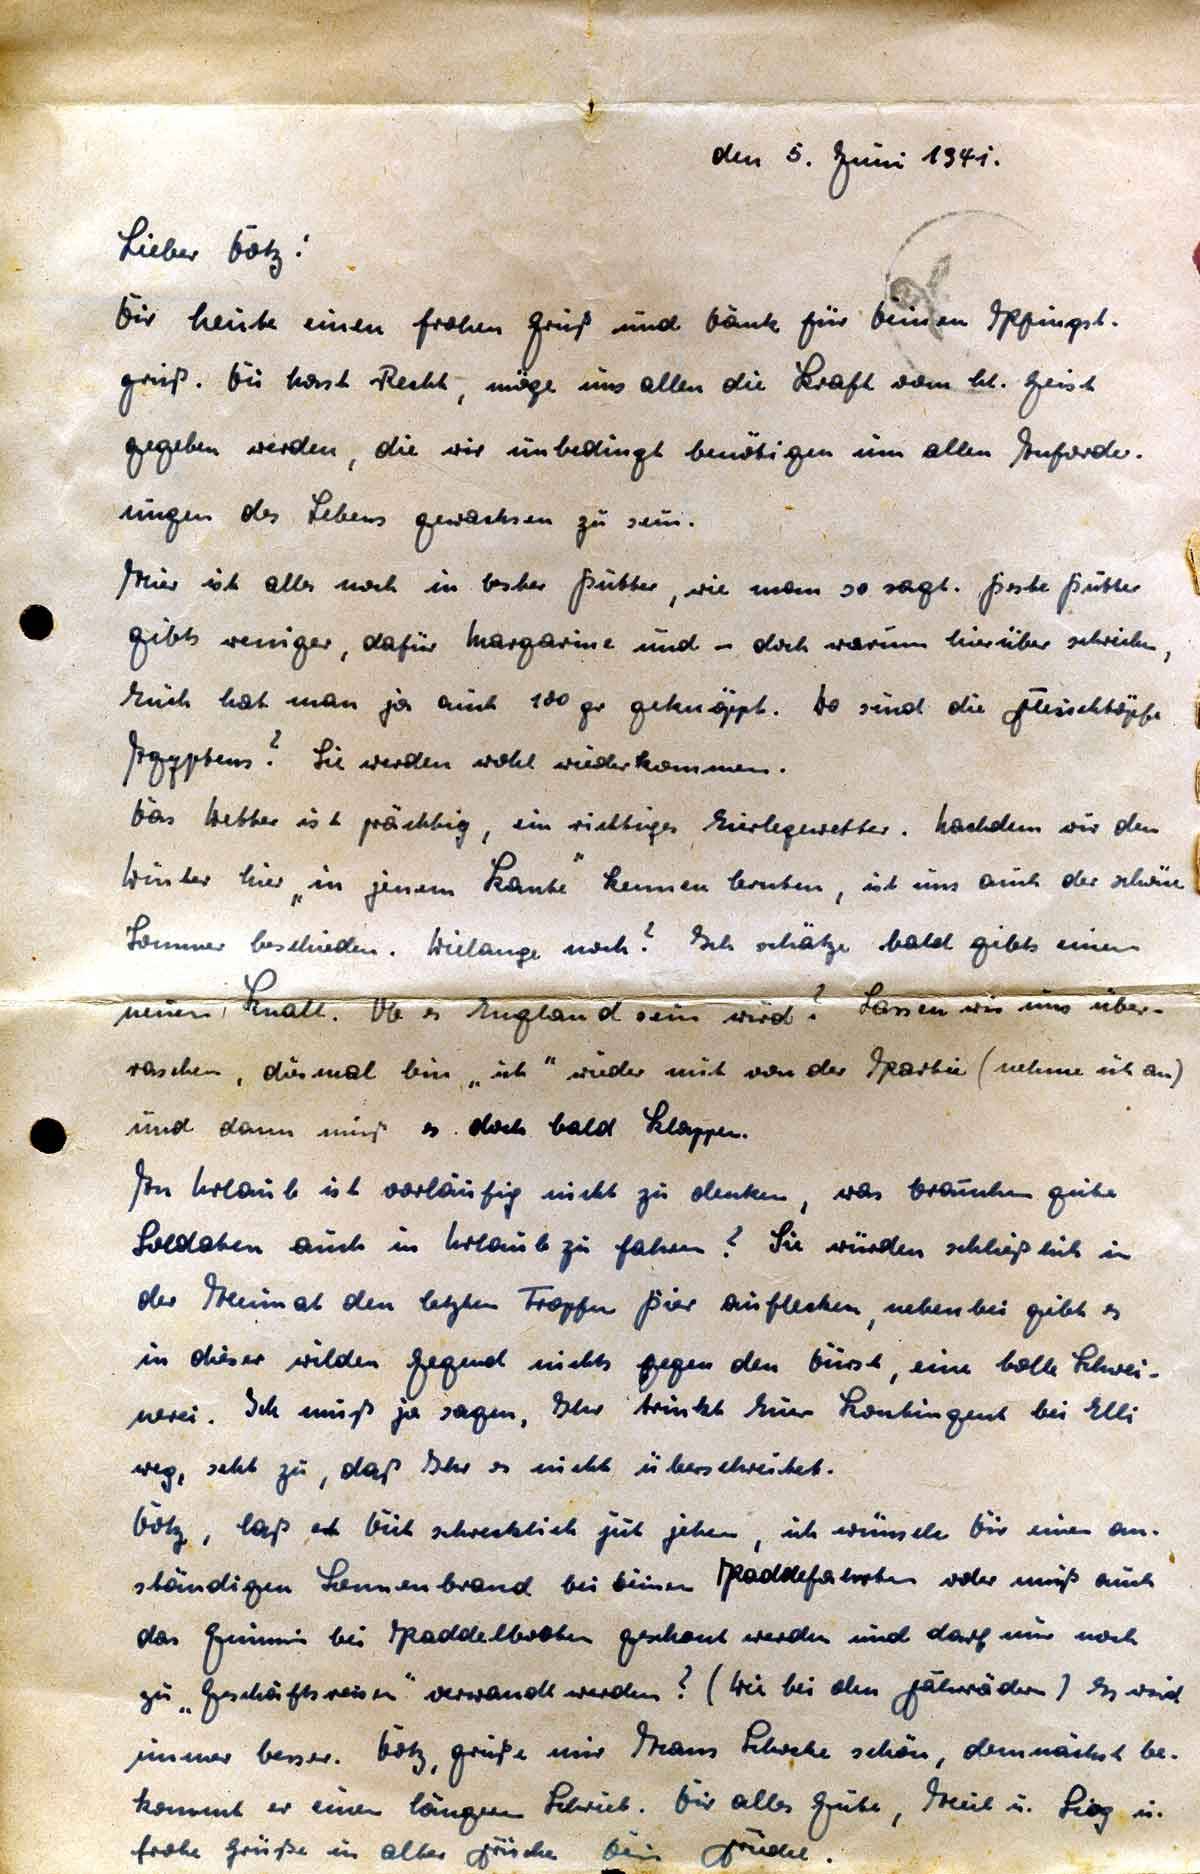 den 5. Juni 1941.
Lieber Götz!
Dir heute einen frohen Gruß und Dank für Deinen Pfingst-
gruß. Du hast Recht, möge uns allen die Kraft vom hl. Geist
gegeben werden, die wir unbedingt benötigen um allen Anforde-
rungen des Lebens gewachsen zu sein.
Hier ist alles noch in bester Butter, wie man so sagt. Beste Butter
gibts weniger, dafür Margarine und - doch warum hierüber schreiben,
Euch hat man ja auch 100 gr geknöppt. Wo sind die Fleischtöpfe
Ägyptens? Sie werden wohl wiederkommen.
Das Wetter ist prächtig, ein richtiges Eierlegewetter. Nachdem wir den
Winter hier „in jenem Lande" kennen lernten, ist uns auch der schöne
Sommer beschieden. Wielange noch? Ich schätze bald gibts einen
neuen Knall. Ob es England sein wird? Lassen wir uns über-
raschen, diesmal bin „ich" wieder mit von der Partie (nehme ich an)
und dann muß es doch bald klappen.
An Urlaub ist vorläufig nicht zu denken, was brauchen gute
Soldaten auch in Urlaub zu fahren? Sie würden schließlich in
der Heimat den letzten Tropfen Bier auflecken, nebenbei gibt es
in dieser wilden Gegend nichts gegen den Durst, eine tolle Schwei-
nerei. Ich muß ja sagen, Ihr trinkt Euer Kontingent bei Elli
weg, seht zu, daß Ihr es nicht überschreitet.
Götz, laß et Dich schrecklich jut jehen, ich wünsche Dir einen an-
ständigen Sonnenbrand bei Deinen Paddelfahrten oder muß auch
das Gummi bei Paddelbooten geschont werden und darf nur noch
zu „Geschäftsreisen" verwandt werden? (Wie bei den Fahrrädern) Es wird
immer besser. Götz, grüße mir Hans schön, demnächst be-
kommt er einen längeren Schrieb. Dir alles Gute, Heil u. Sieg u.
frohe Grüße in alter Frische Dein